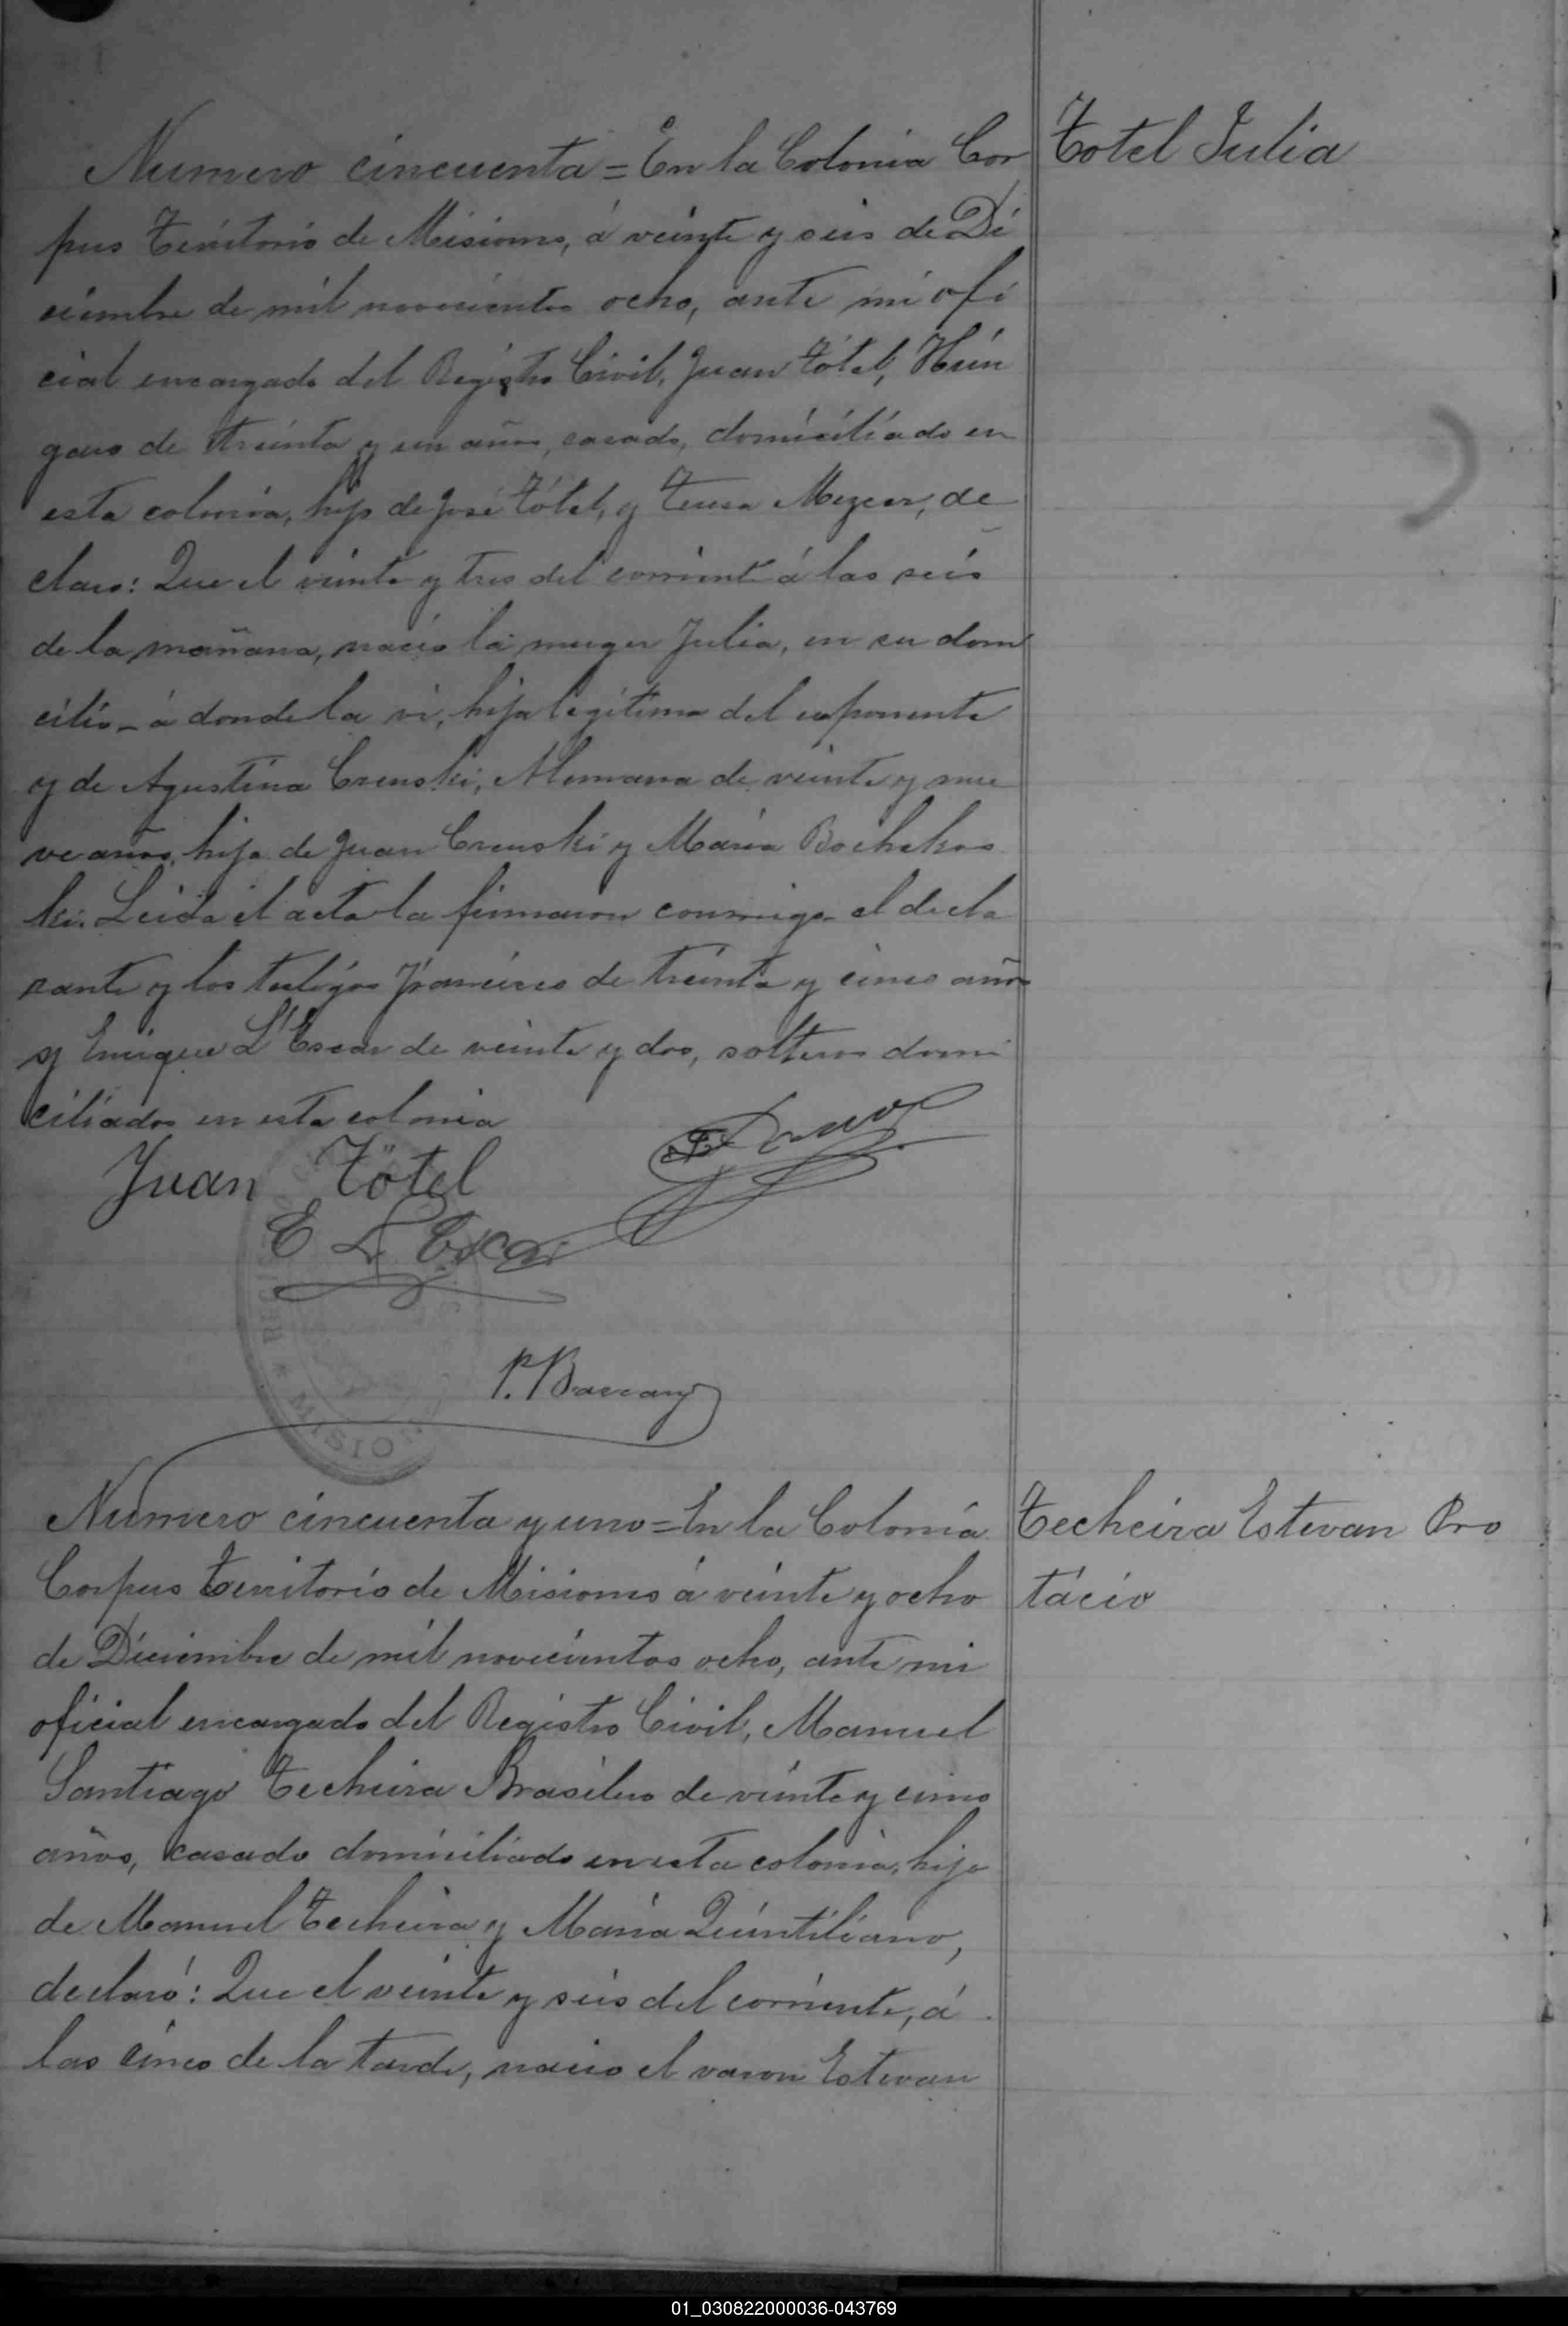 Numero cincuenta = En la Colonia Cor
Totel Julia
pus Territorio de Misiones, á veinte y seis de Di
ciembre de mil novecientos ocho, ante mi ofi
cial encargado del Registro Civil, Juan Tótel, Hún
garo de treinta y un años, casado, domiciliado en
esta colonia, hijo de José Tótel, y Teresa de
claro: Que el veinte y tres del corriente á las seis
de la mañana, nacio la muger Julia, en su domi
cilio - á donde la vi, hija legítima del exponente
y de Agustina Crenski, Alemana de veinte y nue
ve años, hija de Juan Crenski y María
ki. Leida el acta la firmaron conmigo el decla
rante y los testigos de treinta y cinco años
y Enrique L'Escar de veinte y dos, solteros domi
ciliados en esta colonia
Juan Tötel
E L Escar
P.
MISIO
Numero cincuenta y uno = En la Colonia
Techeira Estevan Pro
Corpus Territorio de Misiones á veinte y ocho
tácio
de Diciembre de mil novecientos ocho, ante mi
oficial encargado del Registro Civil, Manuel
Santiago Techeira Brasilero de veinte y cinco
años, casado domiciliado en esta colonia, hijo
de Manuel Techeira y María Quintiliano,
declaró: Que el veinte y seis del corriente, á
las cinco de la tarde, nacio el varon Estevan
01_030822000036-043769